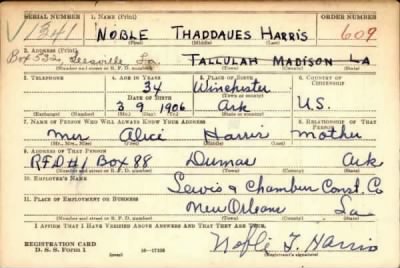 SERIAL NUMBER 1. NAME (Print) ORDER NUMBER
1341 NOBLE THADDAUES HARRIS 609
(First) (Middle) (Last)
2. ADDRESS (Print)
Box 522, Leesville, La TALLULAH MADISON LA
(Number and street or R. F. D. number) (Town) (County) (State)
3. TELEPHONE 4. AGE IN YEARS 5. PLACE OF BIRTH 6. COUNTRY OF CITIZENSHIP
34 Winchester
DATE OF BIRTH (Town or county)
3 9 1906 Ark U.S.
(Mo.) (Day) (Yr.) (State or country)
7. NAME OF PERSON WHO WILL ALWAYS KNOW YOUR ADDRESS 8. RELATIONSHIP OF THAT PERSON
Mrs Alice Harris Mother
(Mr., Mrs., Miss) (First) (Middle) (Last)
9. ADDRESS OF THAT PERSON
RFD#1 Box 88 Dumas Ark
(Number and street or R. F. D. number) (Town) (County) (State)
10. EMPLOYER'S NAME
Lewis & Chamber Const. Co
11. PLACE OF EMPLOYMENT OR BUSINESS
New Orleans La
(Number and street or R. F. D. number) (Town) (County) (State)
I AFFIRM THAT I HAVE VERIFIED ABOVE ANSWERS AND THAT THEY ARE TRUE.
REGISTRATION CARD
D. S. S. Form 1 Noble T. Harris
(Registrant's signature)